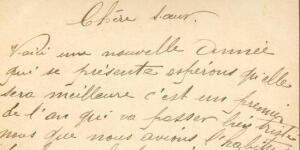 Chère sœur.
Voilà une nouvelle année
qui se présente espérons qu'elle
sera meilleure c'est un premier
de l'an qui va passer bien triste
mois que nous avions l'habitu